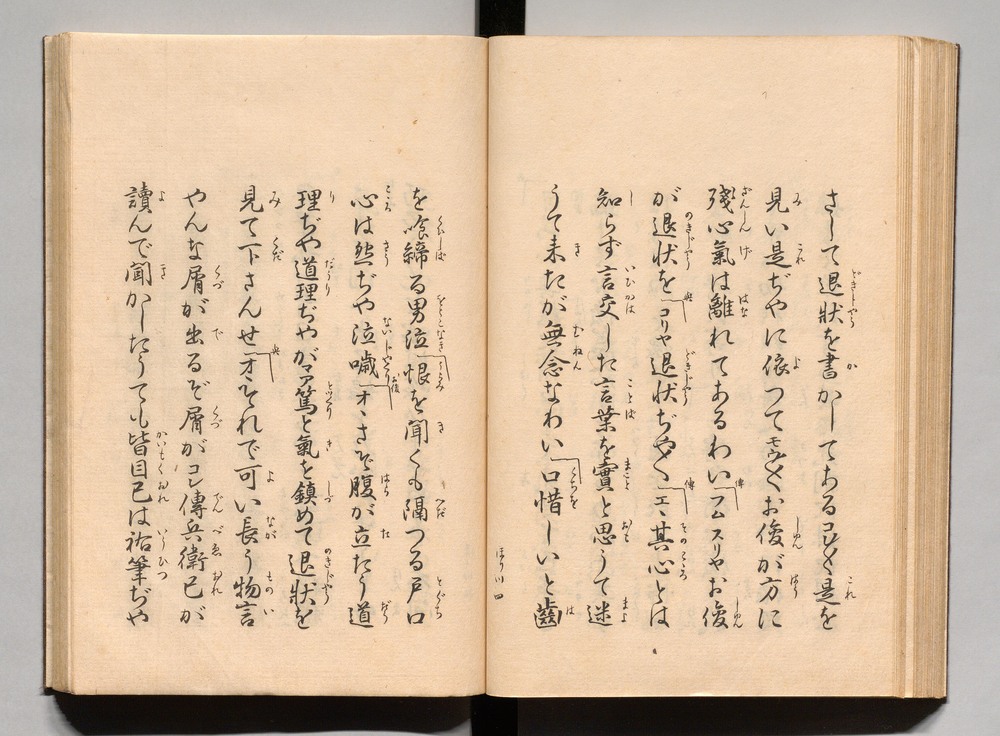 さして退狀を書かしてあるコレ〱是を
見い是ぢやに依つてモウ〱お俊が方に
殘心氣は離れてあるわいフムスリヤお俊
が退狀をコリヤ退狀ぢや〱エヽ其心とは
知らず言交した言葉を實と思うて迷
うて来たが無念なわい口惜しいと齒
ほり川四
を喰締る男泣恨を聞くも隔つる戸口
心は然ぢや泣噦オヽさぞ腹が立たう道
理ぢや道理ぢやがマア篤と氣を鎮めて退狀を
見て下さんせオヽそれで可い長う物言
やんな屑が出るぞ屑がコレ傳兵衛己が
讀んで聞かしたうても皆目己は祐筆ぢや